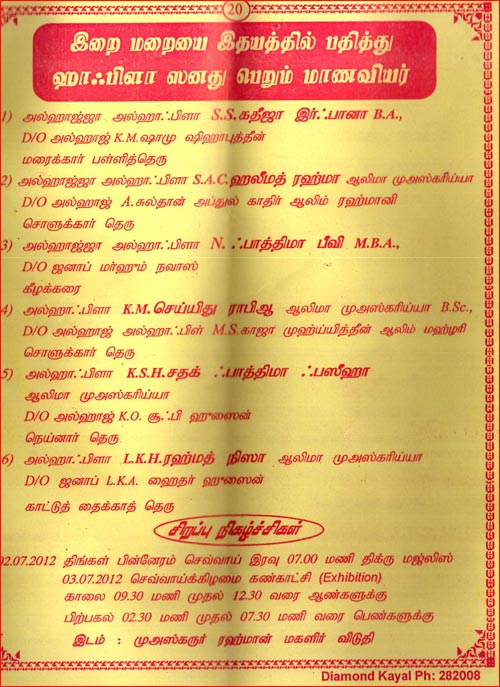 20
இறை மறையை இதயத்தில் பதித்து
ஹாஃபிளா ஸனது பெறும் மாணவியர்
1) அல்ஹாஜ்ஜா அல்ஹாஃபிளா S.S.கதீஜா இர்ஃபானா B.A.,
D/O அல்ஹாஜ் K.M.ஷாமு ஷிஹாபுத்தீன்
மரைக்கார் பள்ளித்தெரு
2) அல்ஹாஜ்ஜா அல்ஹாஃபிளா S.A.C.ஹலீமத் ரஹ்மா ஆலிமா முஅஸ்கரிய்யா
D/O அல்ஹாஜ் A.சுல்தான் அப்துல் காதிர் ஆலிம் ரஹ்மானி
சொளுக்கார் தெரு
3) அல்ஹாஜ்ஜா அல்ஹாஃபிளா N. ஃபாத்திமா பீவி M.B.A.,
D/O ஜனாப் மர்ஹூம் நவாஸ்
கீழக்கரை
4) அல்ஹாஃபிளா K.M.செய்யிது ராபிஆ ஆலிமா முஅஸ்கரிய்யா B.Sc.,
D/O அல்ஹாஜ் அல்ஹாஃபிள் M.S.காஜா முஹ்ய்யித்தீன் ஆலிம் மஹ்ழரி
சொளுக்கார் தெரு
5) அல்ஹாஃபிளா K.S.H.சதக் ஃபாத்திமா ஃபஸீஹா
ஆலிமா முஅஸ்கரிய்யா
D/O அல்ஹாஜ் K.O. சூஃபி ஹுஸைன்
நெய்னார் தெரு
6) அல்ஹாஃபிளா L.K.H.ரஹ்மத் நிஸா ஆலிமா முஅஸ்கரிய்யா
D/O ஜனாப் L.K.A. ஹைதர் ஹுஸைன்
காட்டுத் தைக்காத் தெரு
சிறப்பு நிகழ்ச்சிகள்
02.07.2012 திங்கள் பின்னேரம் செவ்வாய் இரவு 07.00 மணி திக்ரு மஜ்லிஸ்
03.07.2012 செவ்வாய்க்கிழமை கண்காட்சி (Exhibition)
காலை 09.30 மணி முதல் 12.30 வரை ஆண்களுக்கு
பிற்பகல் 02.30 மணி முதல் 07.30 மணி வரை பெண்களுக்கு
இடம் : முஅஸ்கருர் ரஹ்மான் மகளிர் விடுதி
Diamond Kayal Ph: 282008